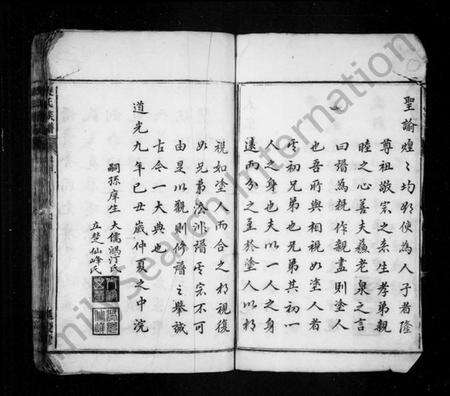 聖諭煌〻均欲使為人子者隆
尊祖敬宗之念生孝弟親
睦之心善夫蘇老泉之言
曰譜為親作親盡則塗人
也吾所與相視如塗人者
其初兄弟也兄弟其初一
人之身也夫以一人之身
遠而分之至於塗人以相
視如塗人而合之相視復
如兄弟法非譜其宗不可
由是以觀則修譜之舉誠
古今一大典也
道光九年己丑歲仲夏之中浣
嗣孫庠生
立楚仙峰氏
millsearch International